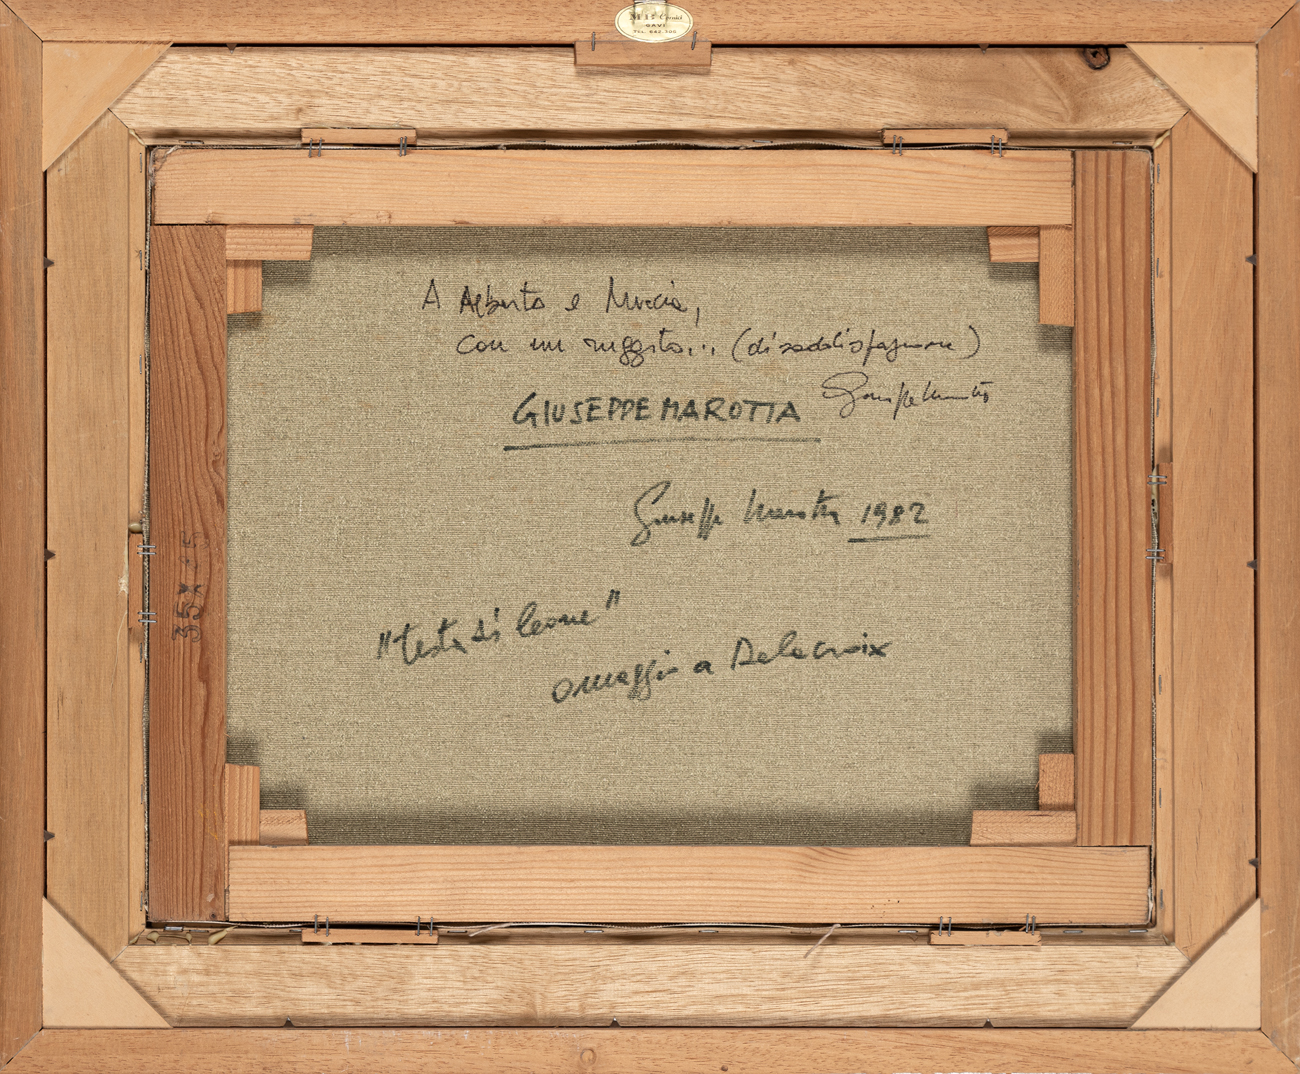 GAVI
TEL. 642.
A Alberto e
con un ruggito... (di soddisfazione)
Giuseppe Marotta
GIUSEPPE MAROTTA
Giuseppe Marotta 1982
"testa di leone"
omaggio a Delacroix
35X45